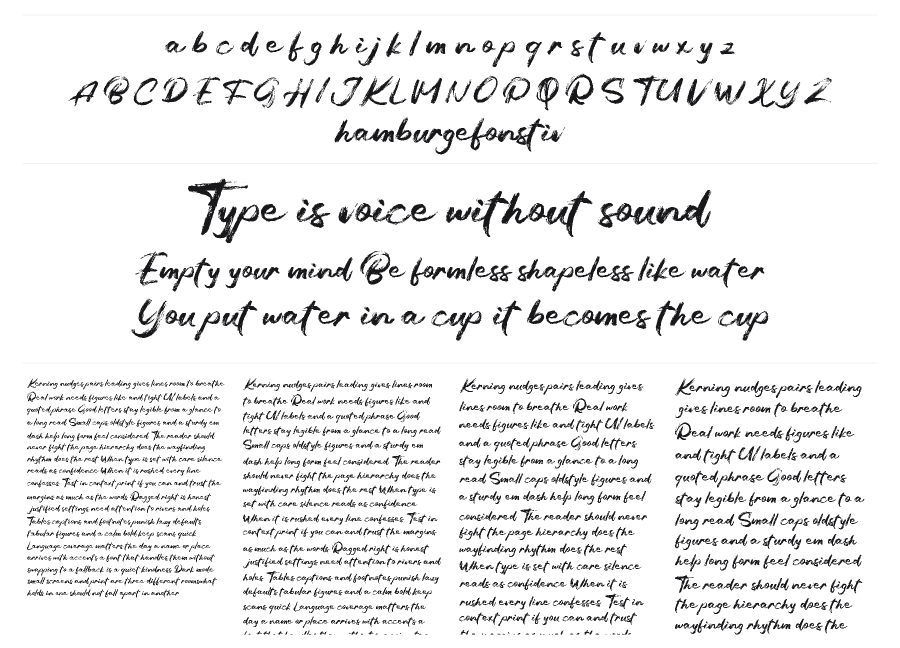 a b c d e f g h i j k l m n o p q r s t u v w x y z
A B C D E F G H I J K L M N O P Q R S T U V W X Y Z
hamburgefonstiv
Type is voice without sound
Empty your mind Be formless shapeless like water
You put water in a cup it becomes the cup
Kerning nudges pairs leading gives lines room to breathe
Real work needs figures like and tight UI labels and a
quoted phrase Good letters stay legible from a glance to
a long read Small caps oldstyle figures and a sturdy em
dash help long form feel considered The reader should
never fight the page hierarchy does the wayfinding
rhythm does the rest When type is set with care silence
reads as confidence When it is rushed every line
confesses Test in context print if you can and trust the
margins as much as the words Ragged right is honest
justified settings need attention to rivers and holes
Tables captions and footnotes punish lazy defaults
tabular figures and a calm bold keep scans quick
Language coverage matters the day a name or place
arrives with accents a font that handles them without
swapping to a fallback is a quiet kindness Dark mode
small screens and print are three different rooms what
holds in one should not fall apart in another
Kerning nudges pairs leading gives lines room
to breathe Real work needs figures like and
tight UI labels and a quoted phrase Good
letters stay legible from a glance to a long read
Small caps oldstyle figures and a sturdy em
dash help long form feel considered The reader
should never fight the page hierarchy does the
wayfinding rhythm does the rest When type is
set with care silence reads as confidence
When it is rushed every line confesses Test in
context print if you can and trust the margins
as much as the words Ragged right is honest
justified settings need attention to rivers and
holes Tables captions and footnotes punish lazy
defaults tabular figures and a calm bold keep
scans quick Language coverage matters the
day a name or place arrives with accents a
Kerning nudges pairs leading gives
lines room to breathe Real work
needs figures like and tight UI labels
and a quoted phrase Good letters
stay legible from a glance to a long
read Small caps oldstyle figures and
a sturdy em dash help long form feel
considered The reader should never
fight the page hierarchy does the
wayfinding rhythm does the rest
When type is set with care silence
reads as confidence When it is
rushed every line confesses Test in
context print if you can and trust
Kerning nudges pairs leading
gives lines room to breathe
Real work needs figures like
and tight UI labels and a
quoted phrase Good letters
stay legible from a glance to a
long read Small caps oldstyle
figures and a sturdy em dash
help long form feel considered
The reader should never fight
the page hierarchy does the
wayfinding rhythm does the